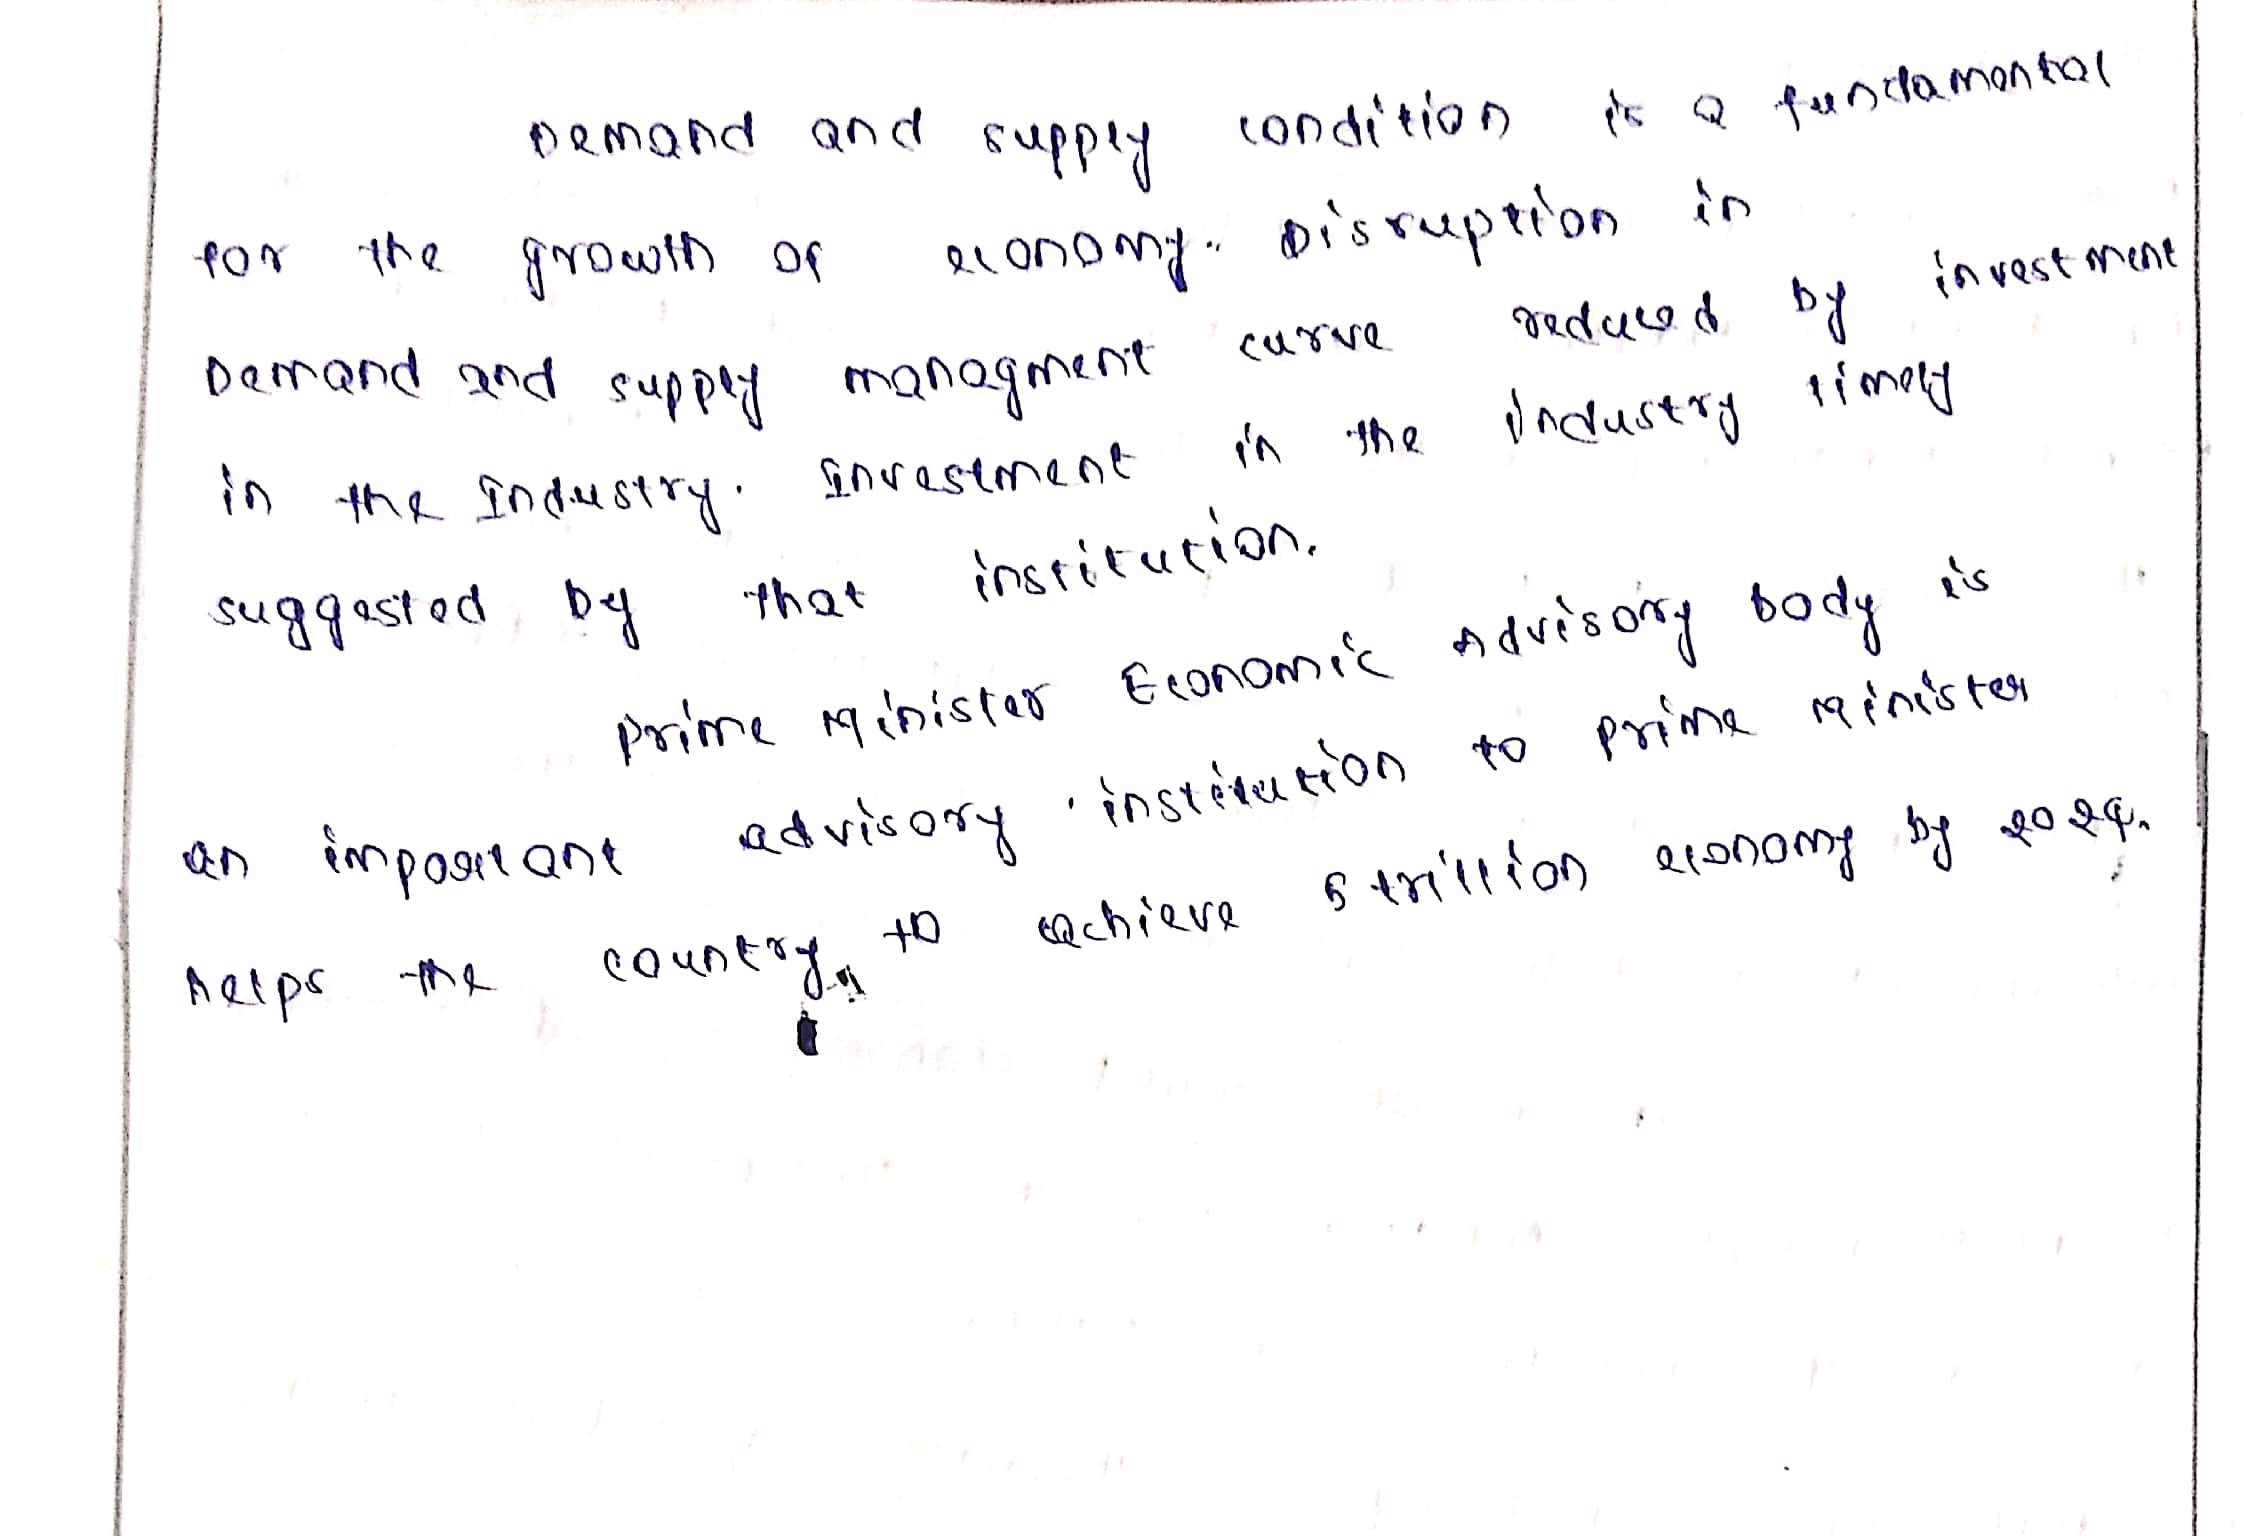 Demand and supply condition is a fundamental
for the growth of economy. Disruption in
Demand and supply managment curve reduced by investment
in the Industry. Investment in the Industry timely
suggested by that institution.
Prime Minister Economic Advisory body is
an important advisory institution to Prime Minister
helps the country, to achieve 5 trillion economy by 2024.